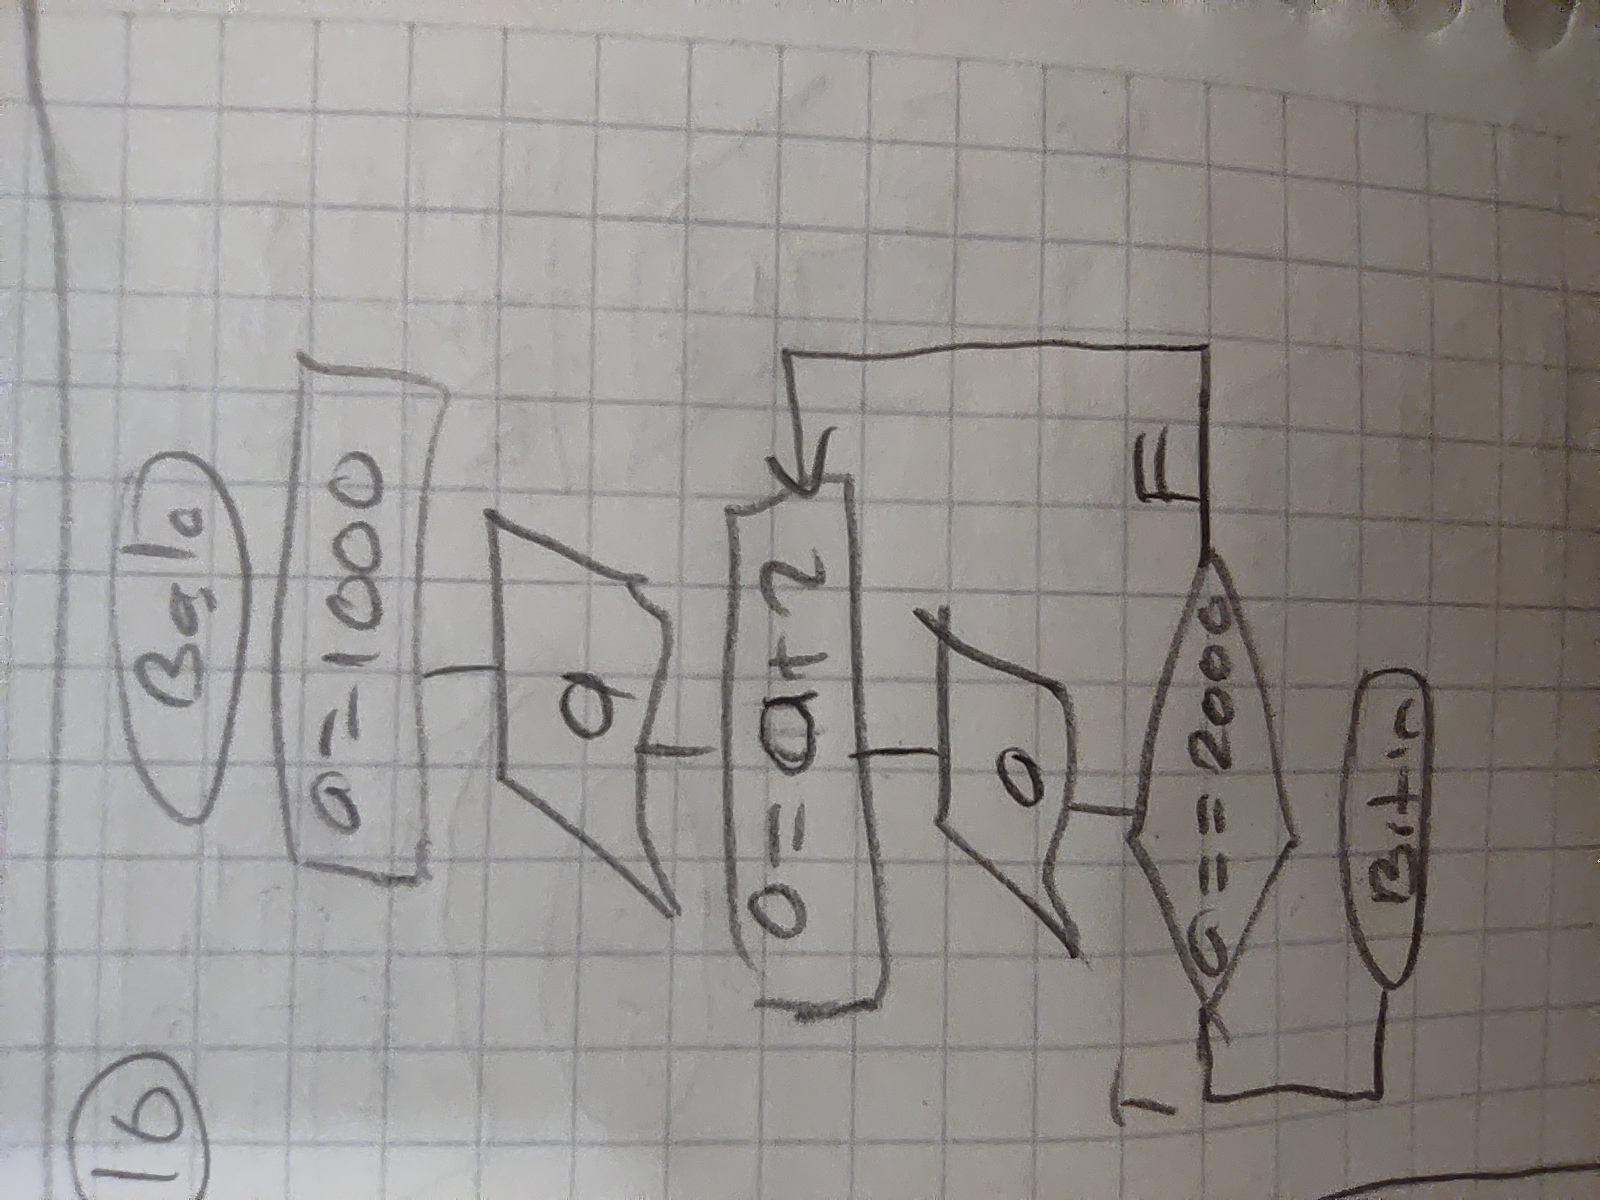 16
Başla
a=1000
a
a=a+2
a
T
a==2000
F
Bitir